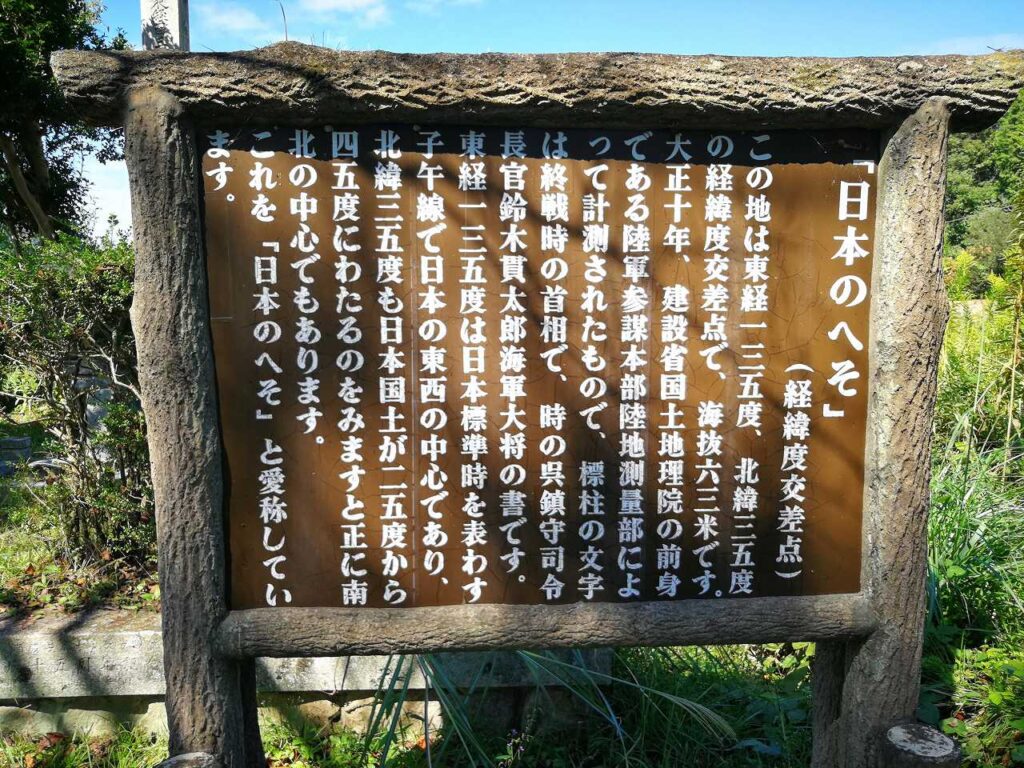 「日本のへそ」
(経緯度交差点)
この地は東経一三五度、北緯三五度
の経緯度交差点で、海抜六三米です。
大正十年、建設省国土地理院の前身
である陸軍参謀本部陸地測量部によ
って計測されたもので、標柱の文字
は終戦時の首相で、時の呉鎮守司令
長官鈴木貫太郎海軍大将の書です。
東経一三五度は日本標準時を表わす
子午線で日本の東西の中心であり、
北緯三五度も日本国土が二五度から
四五度にわたるのをみますと正に南
北の中心でもあります。
これを『日本のへそ』と愛称してい
ます。